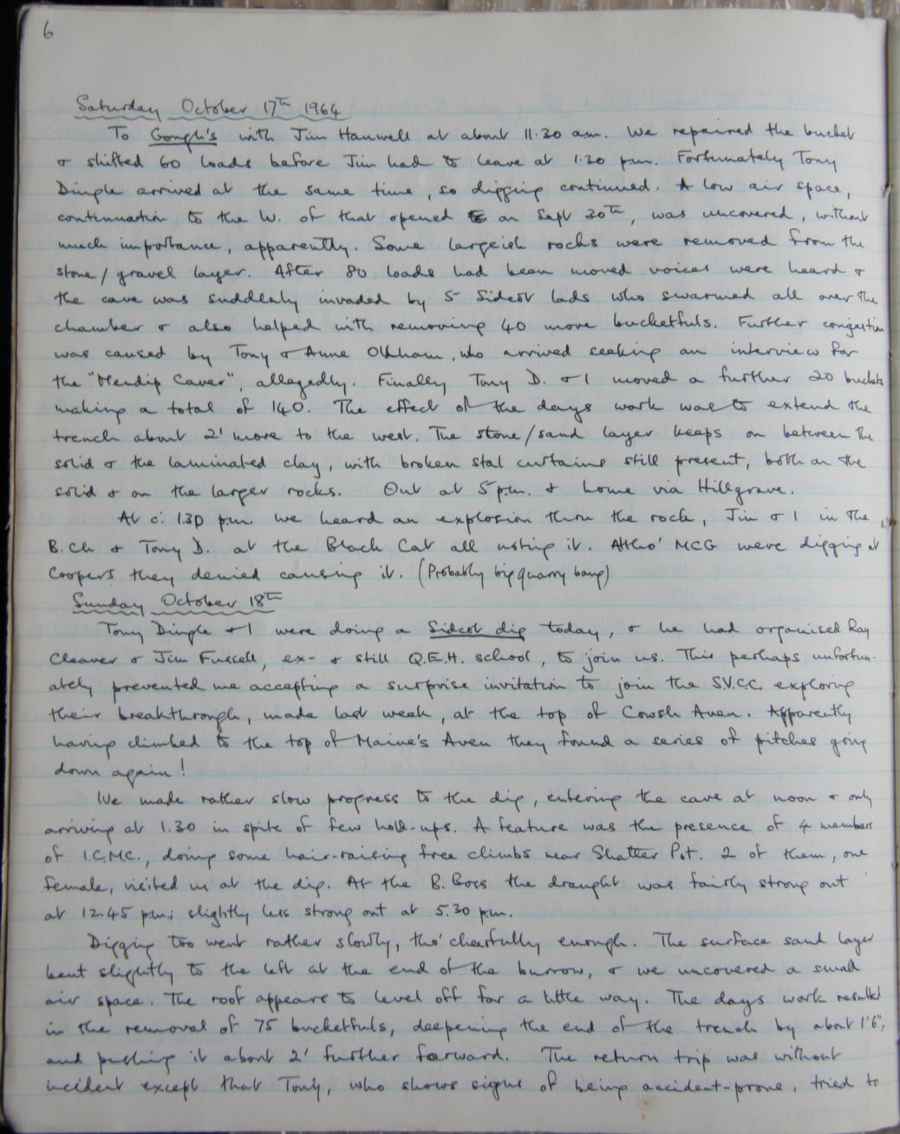 6
Saturday October 17th 1964
To Gough's with Jim Hanwell at about 11.30 am. We repaired the bucket
& shifted 60 loads before Jim had to leave at 1.20 pm. Fortunately Tony
Dingle arrived at the same time, so digging continued. A low air space,
continuation to the W. of that opened on Sept 20th, was uncovered, without
much importance, apparently. Some largeish rocks were removed from the
stone/gravel layer. After 80 loads had been moved voices were heard &
the cave was suddenly invaded by 5 Sidcot lads who swarmed all over the
chamber & also helped with removing 40 more bucketfuls. Further congestion
was caused by Tony & Anne Oldham, who arrived seeking an interview for
the "Mendip Caver", allegedly. Finally Tony D. & I moved a further 20 buckets
making a total of 140. The effect of the days work was to extend the
trench about 2' more to the west. The stone/sand layer keeps on between the
solid & the laminated clay, with broken stal curtains still present, both on the
solid & on the larger rocks. Out at 5 pm. & home via Hillgrove.
At c. 1.30 pm. we heard an explosion thro the rock, Jim & I in the
B.Ch & Tony D. at the Black Cat all noting it. Altho' MCG were digging at
Coopers they denied causing it. (Probably big quarry bang)
Sunday October 18th
Tony Dingle & I were doing a Sidcot dig today, & he had organised Ray
Cleaver & Jim Fussell, ex- & still Q.E.H. school, to join us. This perhaps unfortun-
ately prevented me accepting a surprise invitation to join the S.V.C.C. exploring
their breakthrough, made last week, at the top of Cowsh Aven. Apparently
having climbed to the top of Maine's Aven they found a series of pitches going
down again!
We made rather slow progress to the dig, entering the cave at noon & only
arriving at 1.30 in spite of few hold-ups. A feature was the presence of 4 members
of I.C.M.C., doing some hair-raising free climbs near Shatter Pot. 2 of them, one
female, visited us at the dig. At the B. Boss the draught was fairly strong out
at 12.45 pm; slightly less strong out at 5.30 pm.
Digging too went rather slowly, tho' cheerfully enough. The surface sand layer
bent slightly to the left at the end of the burrow, & we uncovered a small
air space. The roof appears to level off for a little way. The days work resulted
in the removal of 75 bucketfuls, deepening the end of the trench by about 1'6",
and pushing it about 2' further forward. The return trip was without
incident except that Tony, who shows signs of being accident-prone, tried to